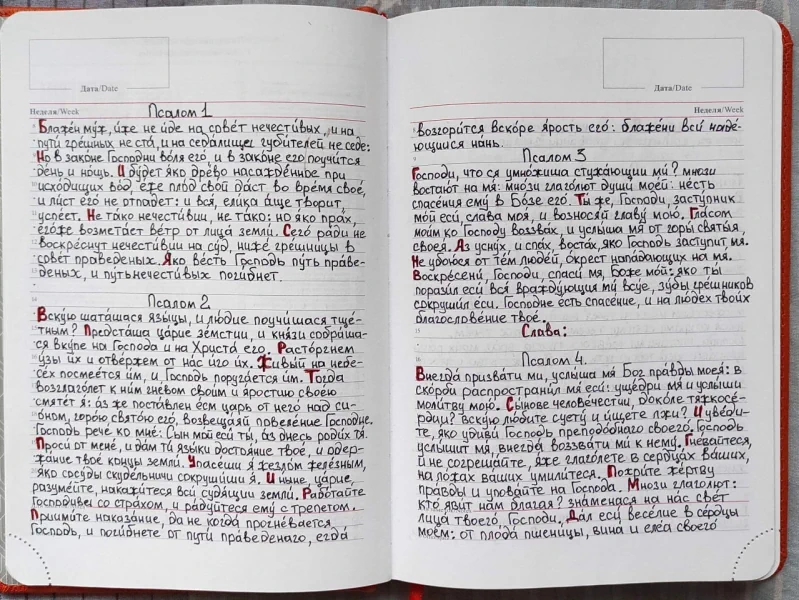 Дата/Date
Неделя/Week
Псалом 1
Блаже́н му́ж, и́же не и́де на сове́т нечести́вых, и на
пути́ гре́шных не ста́, и на седа́лищи губи́телей не се́де:
Но в зако́не Госпо́дни во́ля его́, и в зако́не его́ поучи́тся
де́нь и но́щь. И бу́дет я́ко дре́во насажде́нное при
исхо́дищих во́д, е́же пло́д сво́й да́ст во вре́мя свое́,
и ли́ст его́ не отпаде́т: и вся́, ели́ка а́ще твори́т,
успе́ет. Не та́ко нечести́вии, не та́ко: но я́ко пра́х,
его́же возмета́ет ве́тр от лица́ земли́. Сего́ ра́ди не
воскре́снут нечести́вии на су́д, ниже́ гре́шницы в
сове́т пра́ведных. Яко ве́сть Госпо́дь пу́ть пра́ве-
дных, и пу́ть нечести́вых поги́бнет.
Псалом 2
Вску́ю шата́шася язы́цы, и лю́дие поучи́шася тще́-
тным? Предста́ша ца́рие зе́мстии, и кня́зи собра́ша-
ся вку́пе на Го́спода и на Христа́ его́. Расто́ргнем
у́зы и́х и отве́ржем от на́с и́го и́х. Живы́й на небе-
се́х посмее́тся и́м, и Госпо́дь поруга́ется и́м. Тогда́
возглаго́лет к ни́м гне́вом свои́м и я́ростию свое́ю
смяте́т я́: а́з же поста́влен е́см ца́рь от него́ над си-
о́ном, горо́ю свято́ю его́, возвеща́яй повеле́ние Госпо́дне.
Госпо́дь рече́ ко мне́: Сы́н мой еси́ ты́, а́з дне́сь роди́х тя́.
Проси́ от мене́, и да́м ти́ язы́ки достоя́ние твое́, и одер-
жа́ние твое́ концы́ земли́. Упасе́ши я́ жезло́м желе́зным,
я́ко сосу́ды скуде́льничи сокруши́ши я́. И ны́не ца́рие,
разуме́йте, накажи́теся вси́ судя́щии земли́. Рабо́тайте
Го́сподиви со стра́хом, и ра́дуйтеся ему́ с тре́петом.
Приими́те наказа́ние, да не когда́ прогне́вается
Госпо́дь, и поги́бнете от пути́ пра́веднаго, егда́
Дата/Date
Неделя/Week
возгори́тся вско́ре я́рость его́: блаже́ни вси́ наде́-
ющиися на́нь.
Псалом 3
Го́споди, что ся умно́жиша стужа́ющии ми́? мно́зи
востаю́т на мя́: мно́зи глаго́лют души́ мое́й: не́сть
спасе́ния ему́ в Бо́зе его́. Ты́ же, Го́споди, засту́пник
мо́й еси́, сла́ва моя́, и вознося́й главу́ мою́. Гла́сом
мои́м ко Го́споду воззва́х, и услы́ша мя́ от горы́ святы́я,
своея́. Аз усну́х, и спа́х, воста́х, я́ко Госпо́дь засту́пит мя́.
Не убою́ся от те́м люде́й, о́крест напа́дающих на мя́.
Воскресе́ни, Го́споди, спаси́ мя́, Бо́же мо́й: я́ко ты́
порази́л еси́ вся́ вражду́ющия ми́ всу́е, зу́бы гре́шников
сокруши́л еси́. Госпо́дне есть спасе́ние, и на лю́дех твои́х
благослове́ние твое́.
Слава:
Псалом 4.
Внегда́ призва́ти ми́, услы́ша мя́ Бог пра́вды моея́: в
ско́рби распространи́л мя́ еси́: уще́дри мя́ и услы́ши
моли́тву мою́. Сы́нове челове́честии, доко́ле тяжкосе́-
рдии? вску́ю лю́бите суету́ и и́щете лжи́? И уве́ди-
те, я́ко удиви́ Госпо́дь преподо́бнаго своего́. Госпо́дь
услы́шит мя́, внегда́ воззва́ти ми́ к нему́. Гне́вайтеся,
и не согреша́йте, я́же глаго́лете в сердца́х ва́ших,
на ло́жах ва́ших умили́теся. Пожри́те же́ртву
пра́вды и упова́йте на Го́спода. Мно́зи глаго́лют:
кто́ яви́т на́м блага́я? зна́менася на на́с све́т
лица́ твоего́, Го́споди, Да́л еси́ весе́лие в се́рдцы
мое́м: от плода́ пшени́цы, вина́ и еле́а своего́